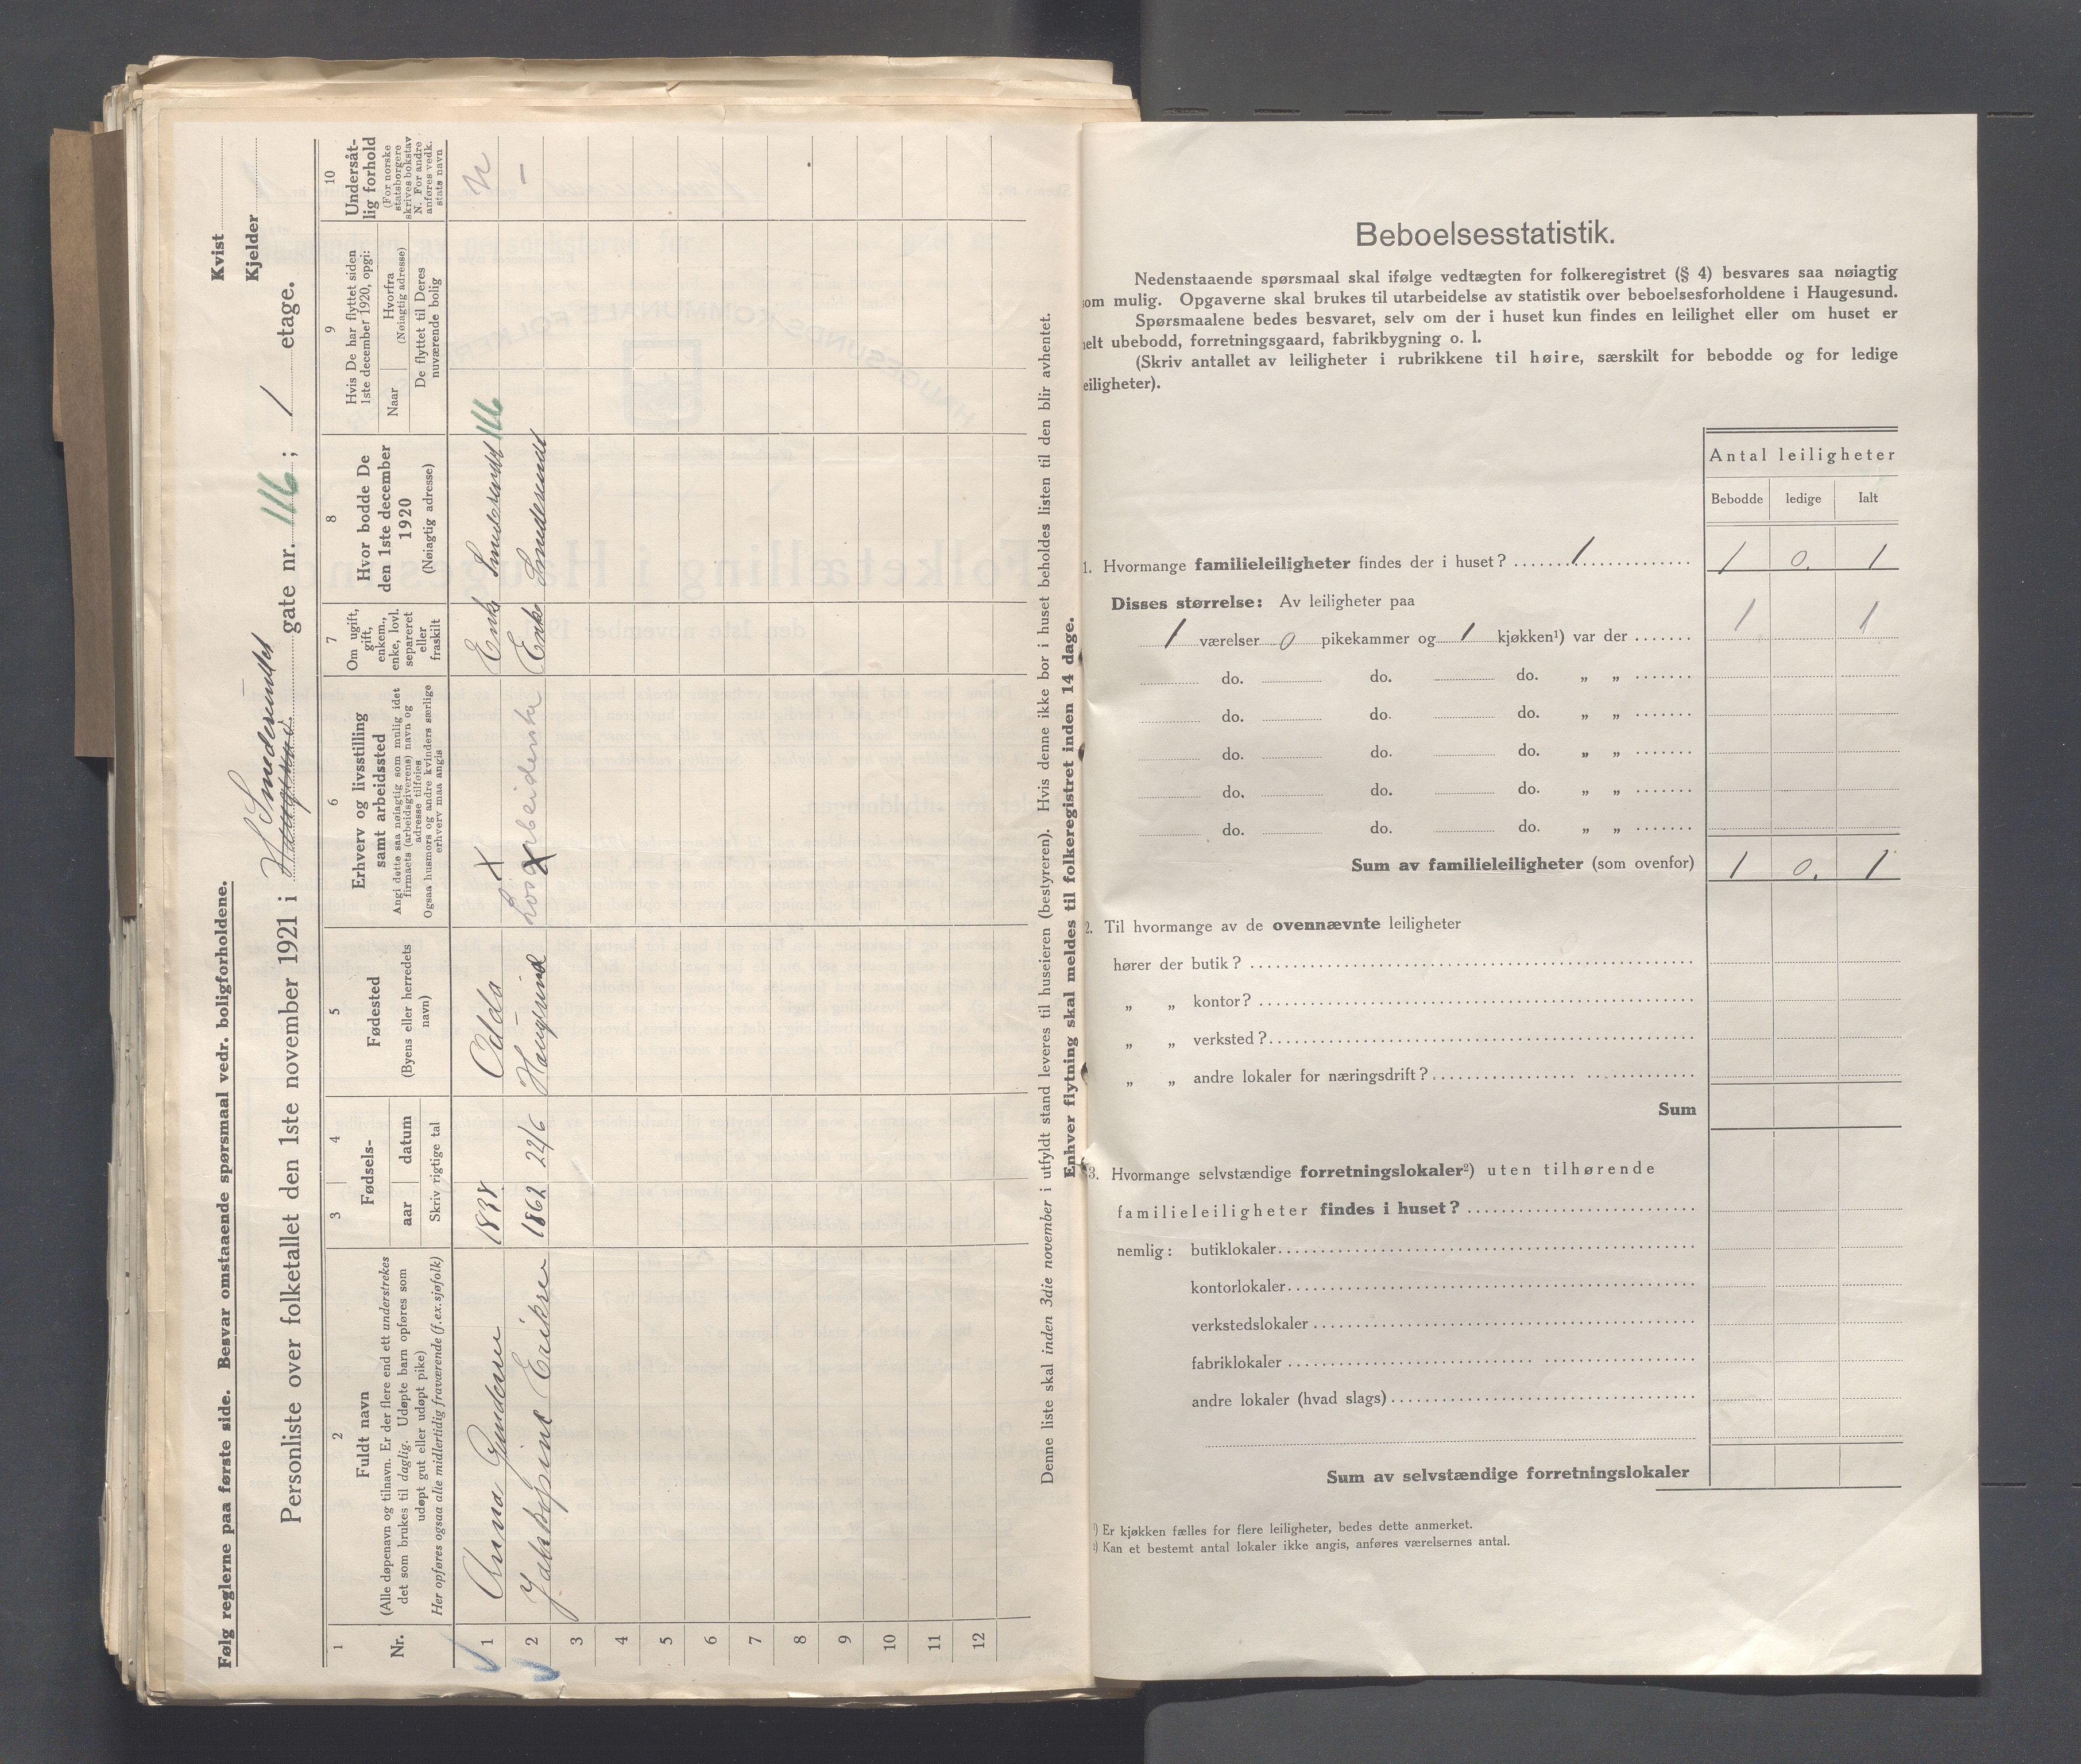 Følg reglerne paa første side. Besvar omstaaende spørsmaal vedr. boligforholdene.
Personliste over folketallet den 1ste november 1921 i Smedesundet gate nr. 116; 1 etage.
Kvist
Kjelder
1
2
3
4
5
6
7
8
9
10
Nr.
Fuldt navn
(Alle døpenavn og tilnavn. Er der flere end ett understrekes
det som brukes til daglig. Udøpte barn opføres som
udøpt gut eller udøpt pike)
Her opføres ogsaa alle midlertidig fraværende (f.ex. sjøfolk)
Fødsels-
aar
datum
Skriv rigtige tal
Fødested
(Byens eller herredets
navn)
Erhverv og livsstilling
samt arbeidssted
Angi dette saa nøiagtig som mulig idet
firmaets (arbeidsgiverens) navn og
adresse tilføies
Ogsaa husmors og andre kvinders særlige
erhverv maa angis
Om ugift,
gift,
enkem.,
enke, lovl.
separeret
eller
fraskilt
Hvor bodde De
den 1ste december
1920
(Nøiagtig adresse)
Hvis De har flyttet siden
1ste december 1920, opgi:
Naar
Hvorfra
(Nøiagtig adresse)
De flyttet til Deres
nuværende bolig
Undersåt-
lig forhold
(For norske
statsborgere
skrives bokstav
N. For andre
anføres vedk.
stats navn
1 Anna Gundersen 1838 Odda X Enke Smedesundet 116 N
2 Jakobine Eriksen 1862 22/6 Haugesund X Enke Smedesundet -
3
4
5
6
7
8
9
10
11
12
Denne liste skal inden 3die november i utfyldt stand leveres til huseieren (bestyreren). Hvis denne ikke bor i huset beholdes listen til den blir avhentet.
Enhver flytning skal meldes til folkeregistret inden 14 dage.
Beboelsesstatistik.
Nedenstaaende spørsmaal skal ifølge vedtægten for folkeregistret (§ 4) besvares saa nøiagtig
om mulig. Opgaverne skal brukes til utarbeidelse av statistik over beboelsesforholdene i Haugesund.
Spørsmaalene bedes besvaret, selv om der i huset kun findes en leilighet eller om huset er
elt ubebodd, forretningsgaard, fabrikbygning o. l.
(Skriv antallet av leiligheter i rubrikkene til høire, særskilt for bebodde og for ledige
eiligheter).
Antal leiligheter
Bebodde ledige Ialt
1. Hvormange familieleiligheter findes der i huset? 1 1 0. 1
Disses størrelse: Av leiligheter paa
1 værelser 0 pikekammer og 1 kjøkken¹) var der 1 1
do. do. do. „ „
do. do. do. „ „
do. do. do. „ „
do. do. do. „ „
do. do. do. „ „
Sum av familieleiligheter (som ovenfor) 1 0. 1
2. Til hvormange av de ovennævnte leiligheter
hører der butik?
„ „ kontor?
„ „ verksted?
„ „ andre lokaler for næringsdrift?
Sum
3. Hvormange selvstændige forretningslokaler²) uten tilhørende
familieleiligheter findes i huset?
nemlig: butiklokaler
kontorlokaler
verkstedslokaler
fabriklokaler
andre lokaler (hvad slags)
Sum av selvstændige forretningslokaler
¹) Er kjøkken fælles for flere leiligheter, bedes dette anmerket.
²) Kan et bestemt antal lokaler ikke angis, anføres værelsernes antal.